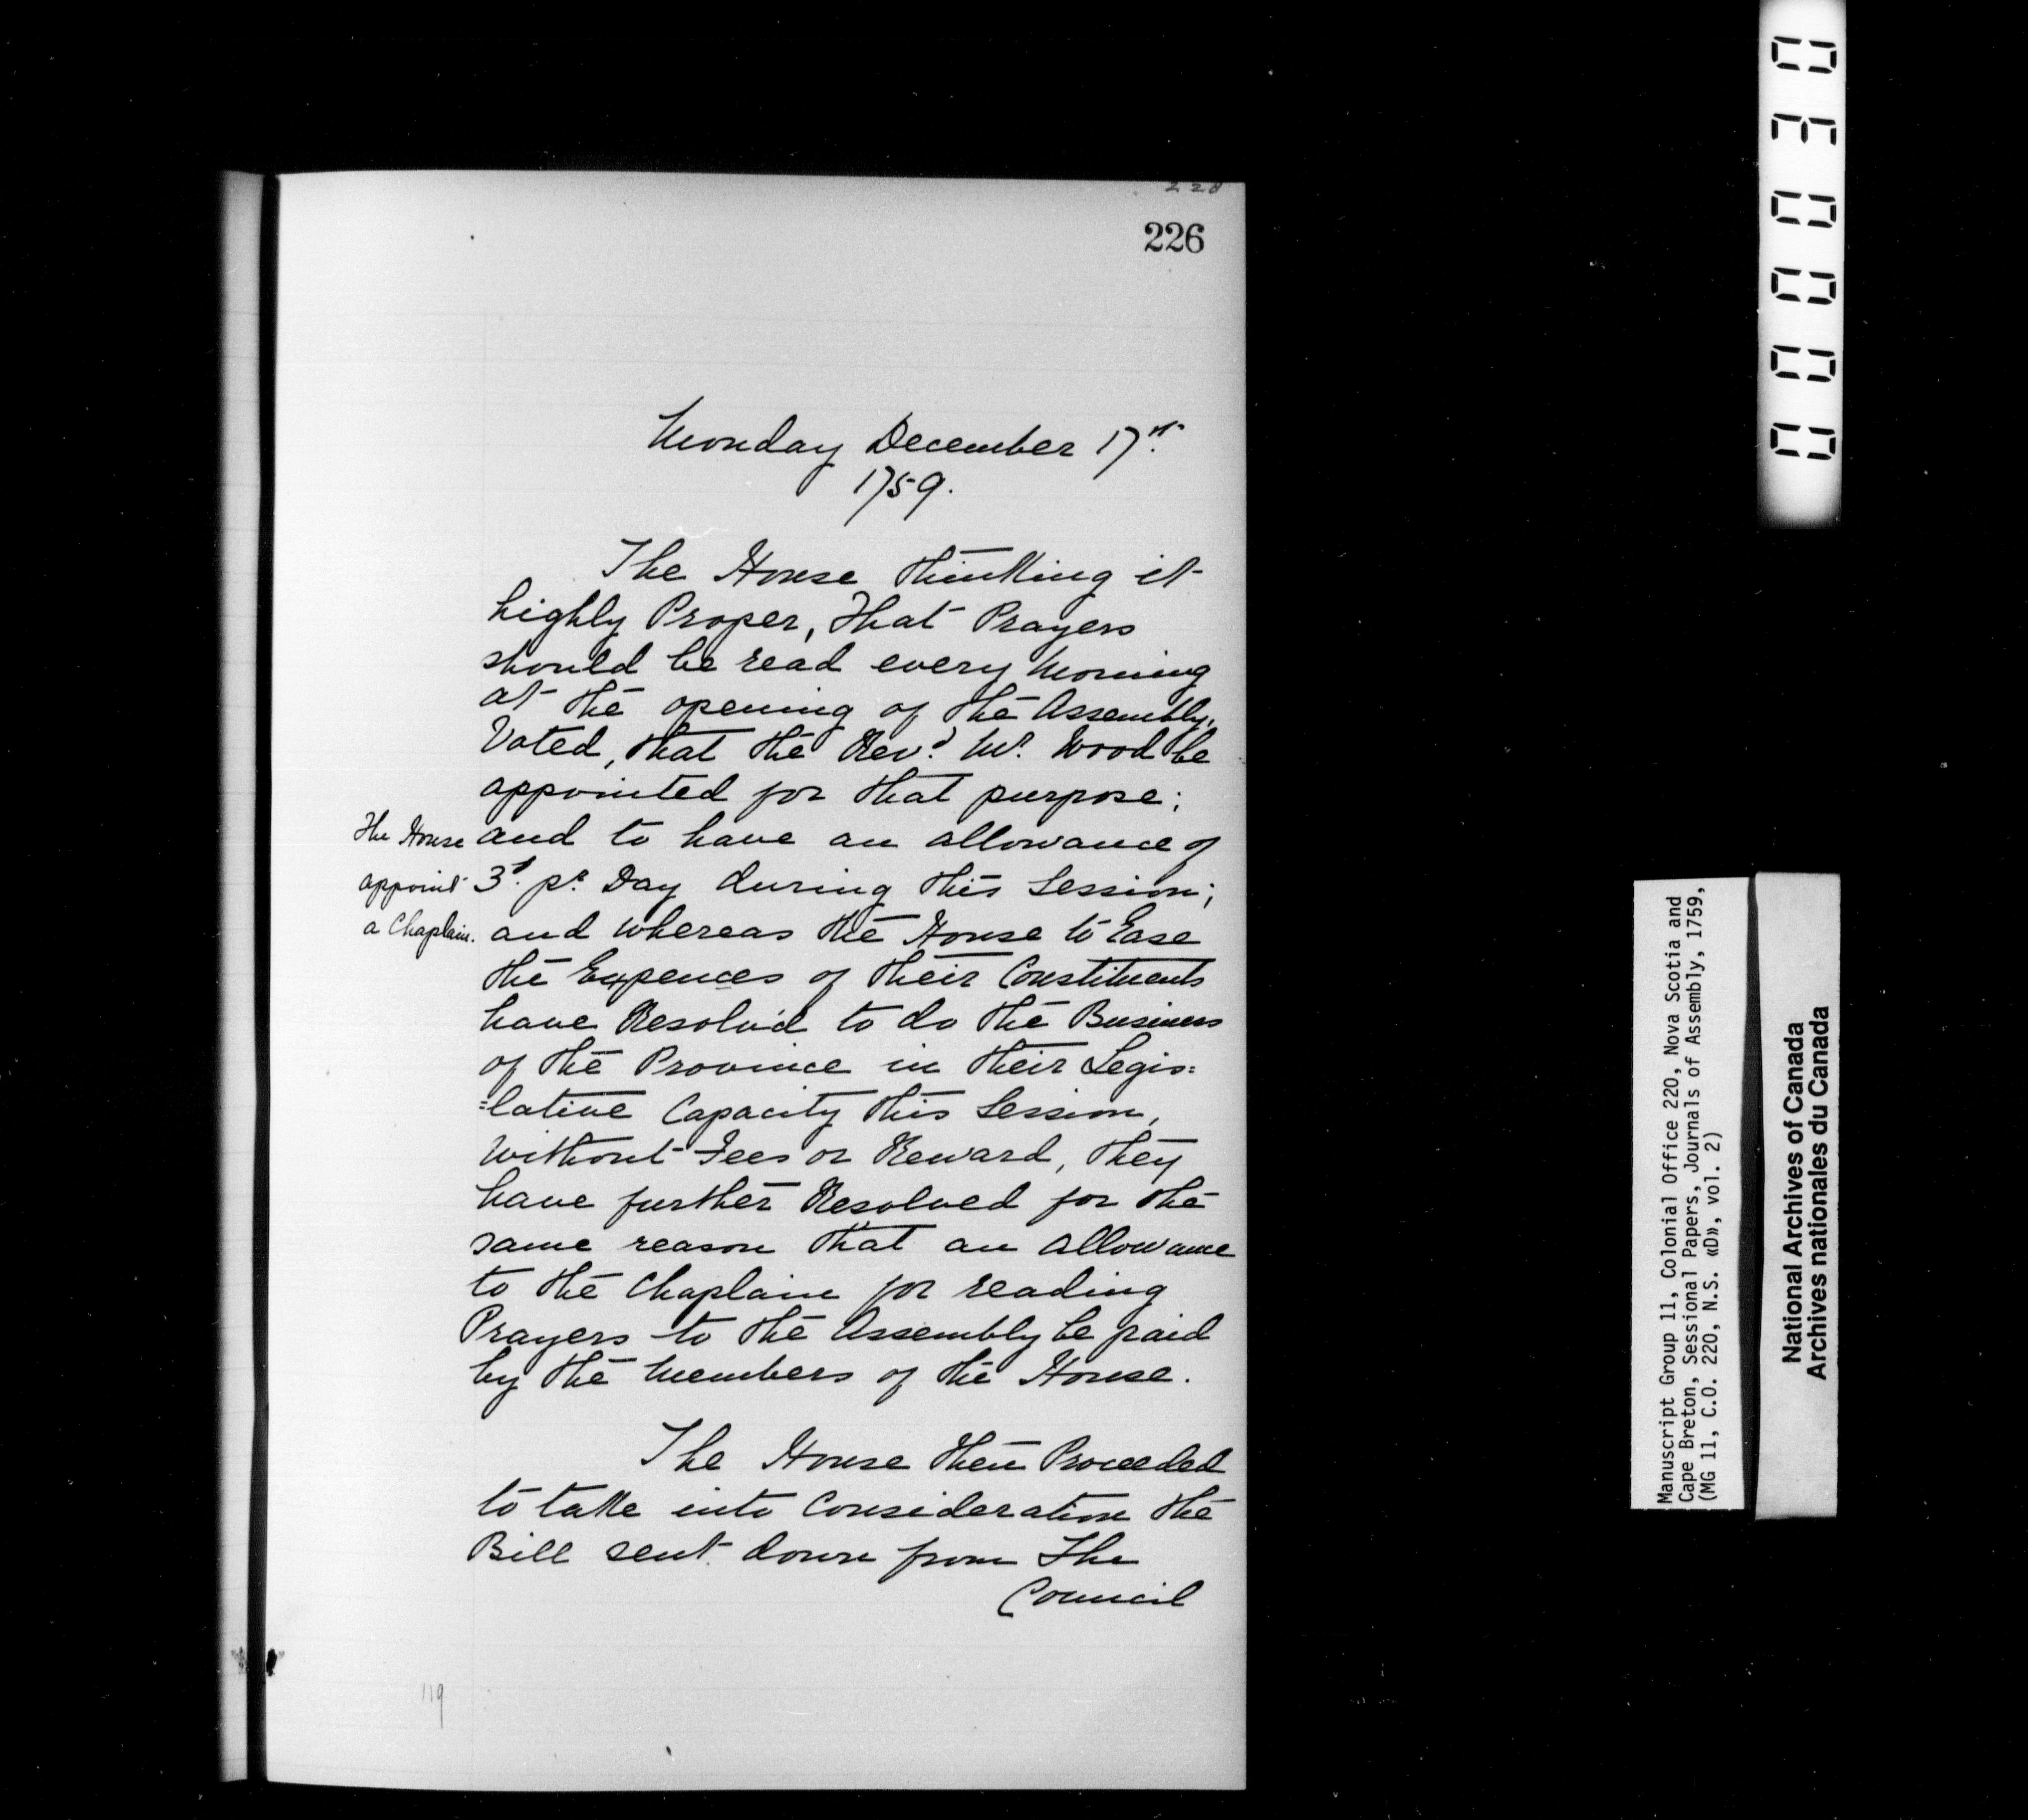 226
Monday December 17th.
1759.
The House thinking it
highly Proper, that Prayers
should be read every Morning
at the opening of the Assembly,
Voted, that the Revd. Mr. Wood be
appointed for that purpose;
and to have an allowance of
3s. pr. Day during this Session;
and whereas the House to Ease
the Expences of their Constituents
have Resolv'd to do the Business
of the Province in their Legis=
=lative Capacity this Session,
without Fees or Reward, they
have further Resolved for the
same reason that an allowance
to the Chaplain for reading
Prayers to the Assembly be paid
by the Members of the House.
The House then Proceeded
to take into Consideration the
Bill sent down from The
Council
The House
appoint
a Chaplain.
119
000030
Manuscript Group 11, Colonial Office 220, Nova Scotia and
Cape Breton, Sessional Papers, Journals of Assembly, 1759,
(MG 11, C.O. 220, N.S. «D», vol. 2)
National Archives of Canada
Archives nationales du Canada